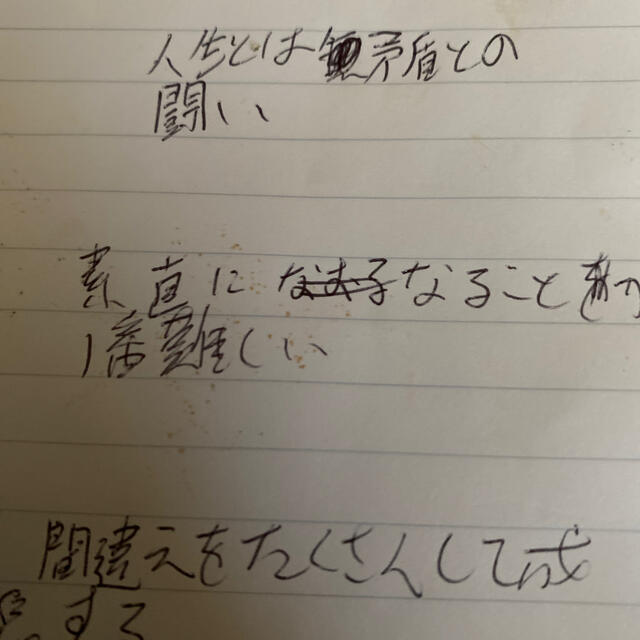 人生とは矛盾との
闘い
素直になることが
1番難しい
間違えをたくさんして成
する